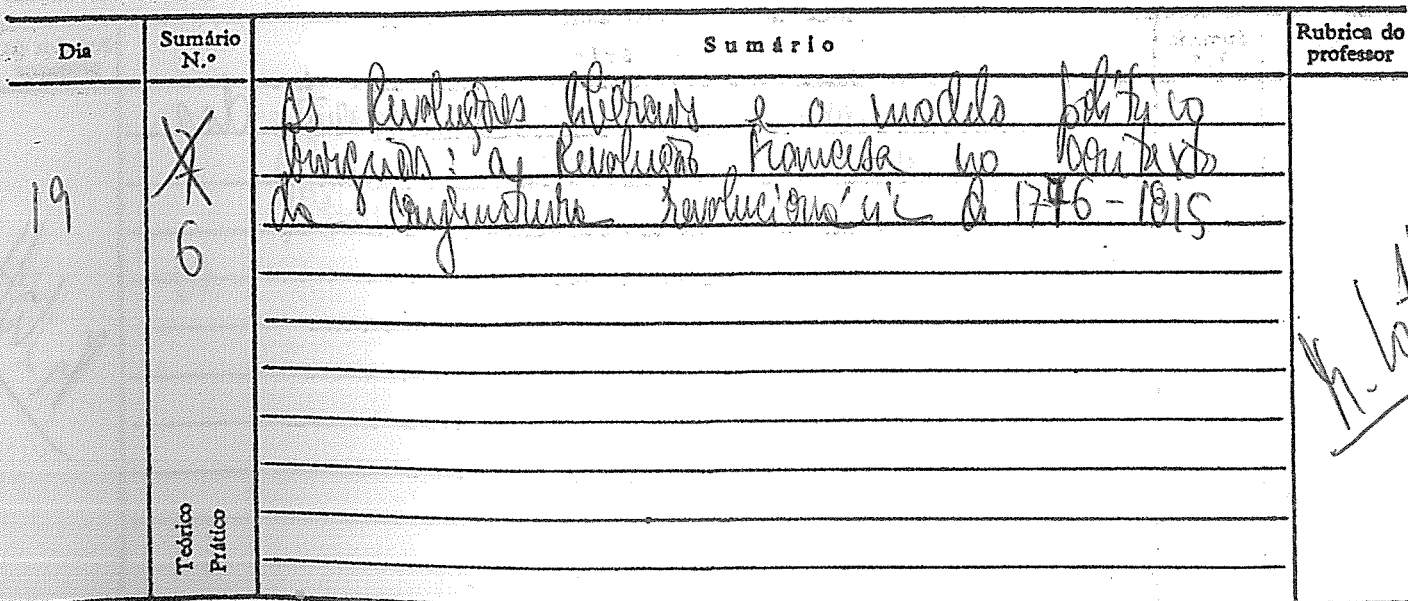 Dia
Sumário N.º
Sumário
Rubrica do professor
19
6
As Revoluções liberais e o modelo político
burguês: a Revolução Francesa no contexto
da conjuntura revolucionária de 1776-1815
Teórico
Prático